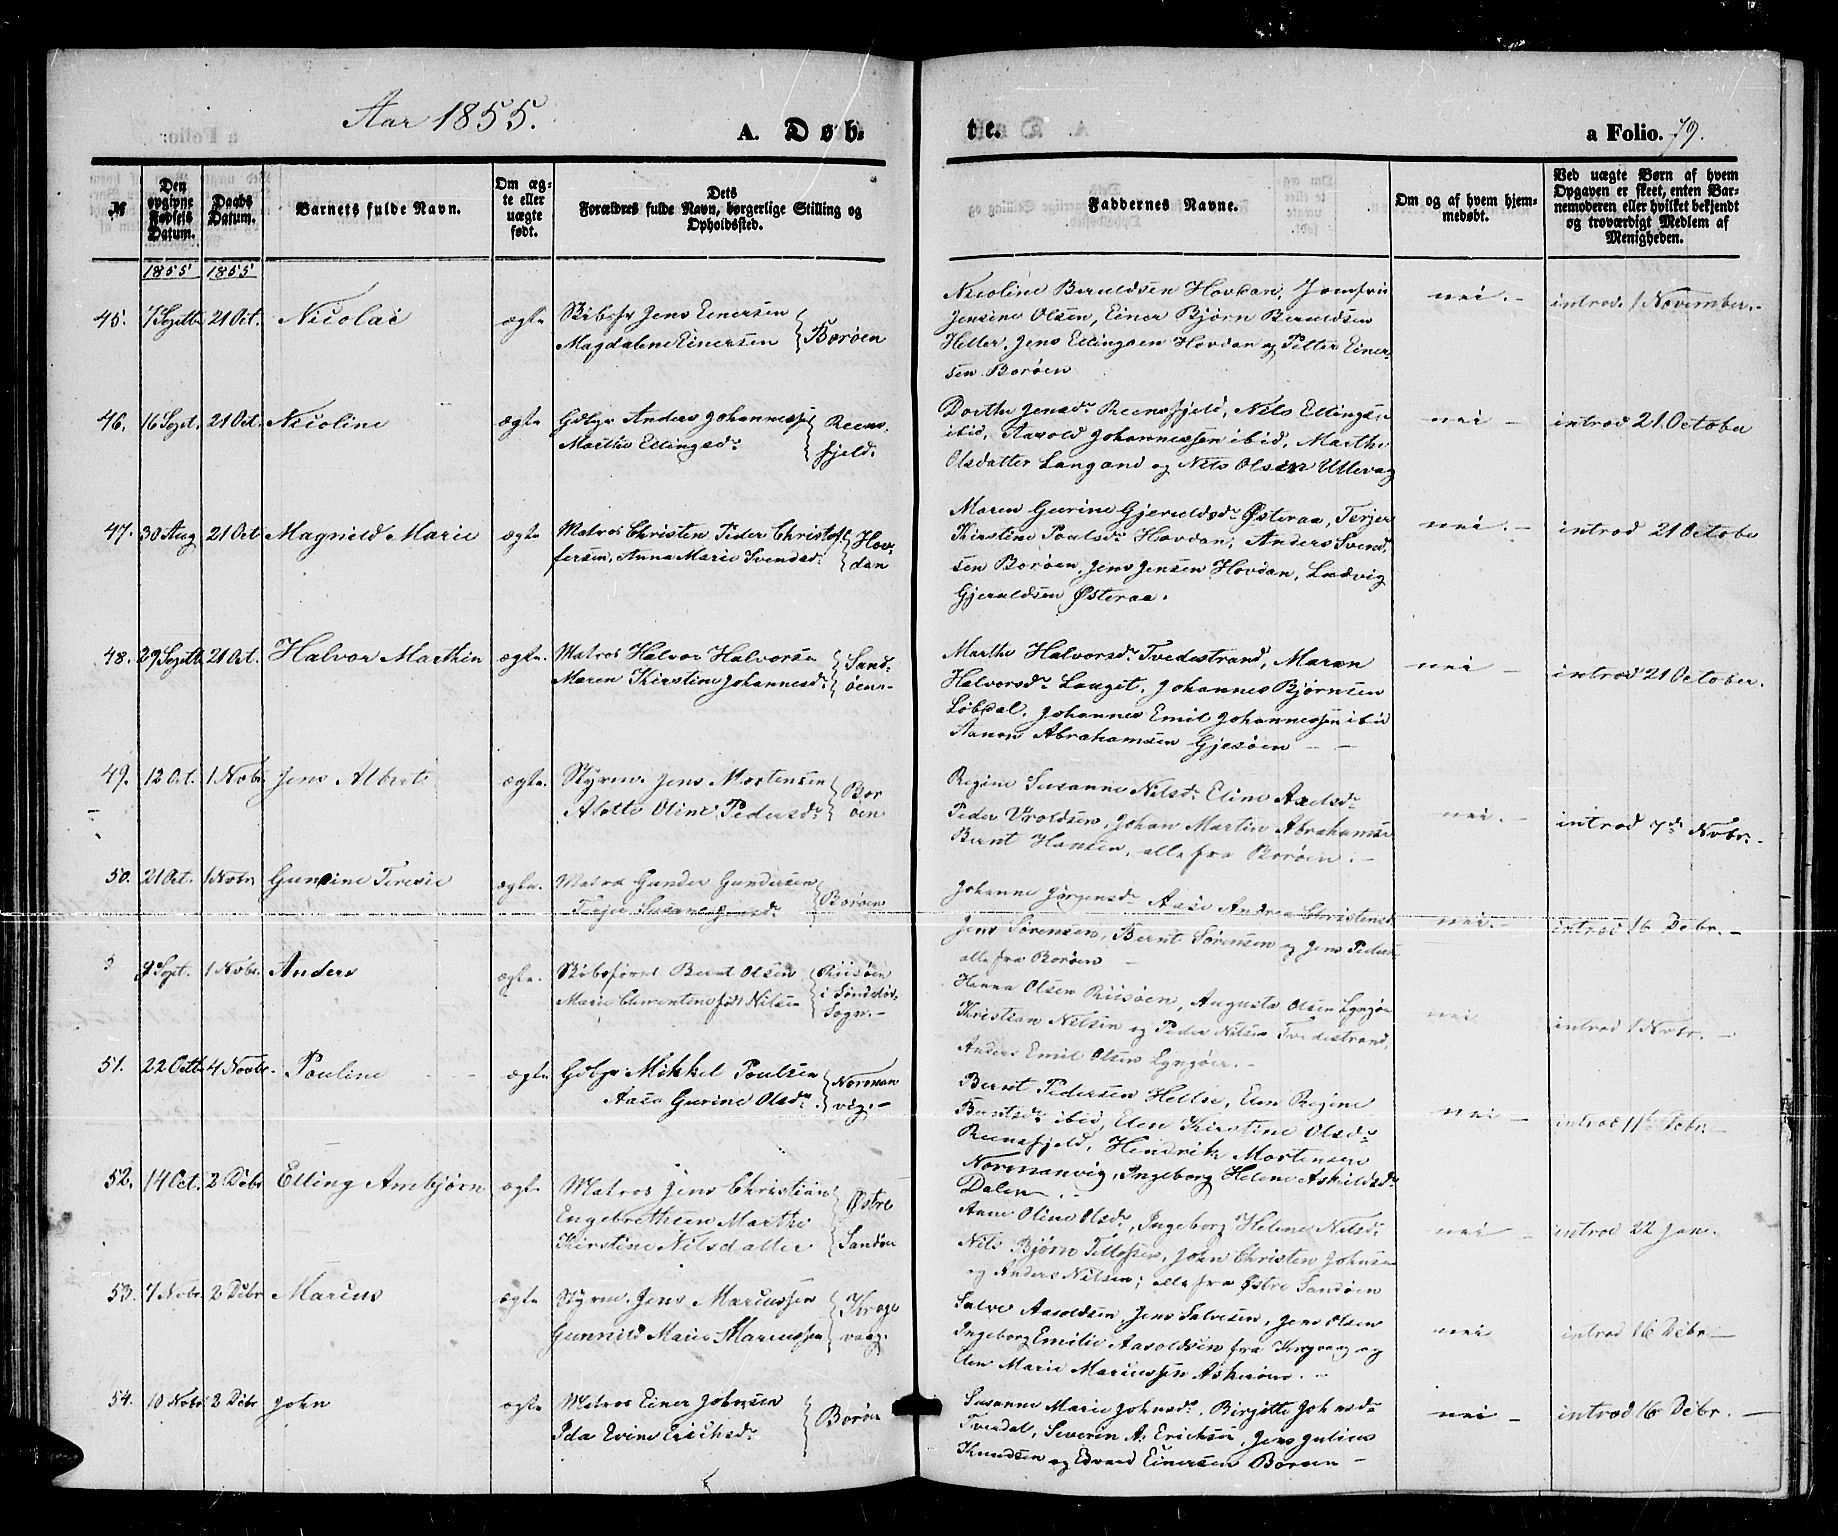 Aar 1855.
A. Døb-
te.
a Folio. 79.
№
Den opgivne Fødsels Datum.
Daabs Datum.
Barnets fulde Navn.
Om ægte eller uægte født.
Dets Forældres fulde Navn, borgerlige Stilling og Opholdssted.
Faddernes Navne.
Om og af hvem hjemmedøbt.
Ved uægte Børn af hvem Opgaven er skeet, enten Barnemoderen eller hvilket bekjendt og troværdigt Medlem af Menigheden.
1855 1855
45. 7 Septb 21 Oct. Nicolai ægte
Jens Einersen
Magdalene Einersen } Borøen
Nicoline Beruldsen Hovdan, Jomfru
Jensine Olsen, Einer Bjørn Beruldsen
Jens Ellingsen Hovdan og Petter Einer-
sen Borøen
nei. - introd. 1 November. -
46. 16 Sept. 21 Oct. Nicoline ægte
Anders Johannessen
Marthe Ellingsd. } Reens-
fjeld.
Dorthe Jensd. Reensfjeld, Nils Ellingsen
ibid, Aasold Johannessen ibid, Marthe
Olsdatter Langand og Nils Olsen Utlevag
nei - introd 21 October
47. 30 Aug 21 Oct Magnild Marie ægte
Matros Christen Peder Christof-
fersen, Anna Marie Svendsd. } Hov-
dan
Maren Gurine Gjeruldsd. Østeraa, Terjer
Kirstine Poulsd. Hovdan, Anders Svend-
sen Borøen, Jens Jensen Hovdan, Ludvig
Gjeruldsen Østeraa.
nei. - introd 21 October
48. 29 Septb 21 Oct. Halvor Marthin ægte.
Matros Halvor Halvorsen
Maren Kirstine Johannesd. } Sand-
øen -
Marthe Halvorsd. Tvedestrand, Maren
Halvorsd. Lauget, Johannes Bjørnsen
Løbdal, Johannes Emil Johannessen ibid
Aanon Abrahamsen Gjesøen - -
nei - introd 21 October.
49. 12 Oct. 1 Nobr Jens Albert ægte.
Styrm. Jens Mortensen
Alette Oline Pedersd. } Bor
øen
Regine Susanne Nilsd. Eline Axelsd.
Peder Uroldsen, Johan Martin Abrahamsen
Bernt Hansen, alle fra Borøen. -
nei. - introd 7d Nobr. -
50. 21 Oct. 1 Nobr Gunine Teresie ægte.
Matros Gunder Gundersen
Terjer Susane Jensd. } Borøen
Johanne Jørgensd. Aase Andrea Christensd.
Jens Sørensen, Bernt Sørensen og Jens Pedersen
alle fra Borøen -
nei. - introd 16 Debr. -
9 Sept. 1 Nobr. Anders ægte.
Skibsfører Bernt Olsen
Marie Clementine født Nilsen } Riisøen
i Søndeløv
Sogn. -
Hanna Olsen Riisøen, Augusta Olsen Lyngør
Kristian Nilsen og Peder Nilsen Tvedestrand,
Anders Emil Olsen Lyngøer. -
nei introd 1 Nobr. -
51. 22 Octb 4 Novbr. Pouline ægte
Mikkel Poulsen
Aase Gurine Olsd. } Norman
vig. -
Bernt Pedersen Helle, Elen Regine
Berntsd. ibid, Elen Kirstine Olsd.
Reensfjeld, Hendrik Mortensen
Normanvig, Ingeborg Helene Askildsd.
Dalen -
nei - introd 11 Debr -
52. 14 Oct. 2 Debr Elling Ambjørn ægte
Matros Jens Christian
Engebrethsen Marthe
Kirstine Nilsdatter } Østre
Sandøen
Anne Oline Olsd., Ingeborg Helene Nilsd.
Nils Bjørn Tellefsen, John Christen Johnsen
og Anders Nilsen; alle fra Østre Sandøen
nei - introd 22 Jan.
53. 7 Nobr 2 Debr Marius ægte
Styrm. Jens Mariussen
Gunnild Marie Mariussen } Krage
vaag.
Salve Aasoldsen, Jens Salvesen, Jens Olsen
Ingeborg Emilie Aasoldsen fra Kragvaag og
Elen Marie Mariussen Askerøen. -
nei introd 16 Debr -
54. 10 Nobr 2 Debr John ægte
Matros Einer Johnsen
Ida Evine Erichsd. } Borøen
Susanne Marie Johnsd., Birgitte Johnsd.
Tverdal, Severin A. Erichsen, Jens Julius
Knudsen og Edvard Einersen Borøen -
nei - introd 16 Debr. -